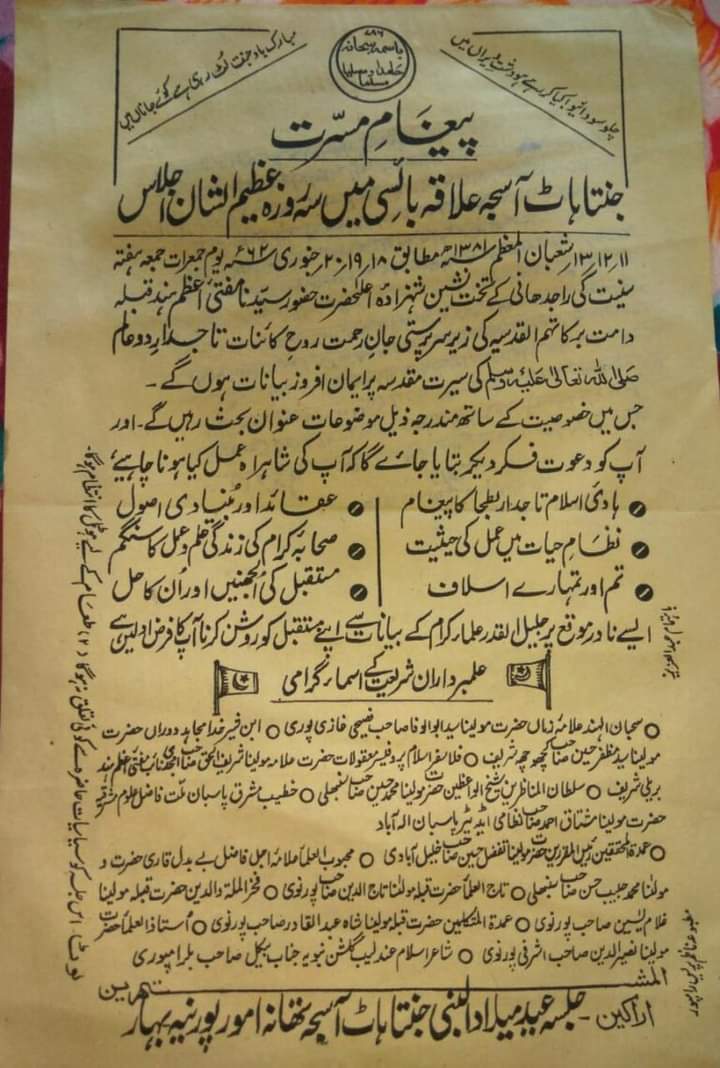 ۷۸۶
باسمہ سبحانہ
حامداً و مسلماً
مبارک باد جنت لٹ رہی ہے کوئے جاناں میں
چلو سودائیو! کیا کر رہے ہو دشت ویراں میں
پیغامِ مسرت
جنتا ہاٹ آسجہ علاقہ بائسی میں سہ روزہ عظیم الشان اجلاس
۱۱، ۱۲، ۱۳ شعبان المعظم ۱۳۸۱ھ مطابق ۱۸، ۱۹، ۲۰ جنوری ۶۲ء یوم جمعرات جمعہ ہفتہ
سنیت کی راجدھانی کے تخت نشین شہزادہ اعلیٰحضرت حضور سیدنا مفتی اعظم ہند قبلہ
دامت برکاتہم القدسیہ کی زیر سرپرستی جان رحمت روح کائنات تاجدار دو عالم
صلی اللہ تعالیٰ علیہ وسلم کی سیرت مقدسہ پر ایمان افروز بیانات ہوں گے۔
جس میں خصوصیت کے ساتھ مندرجہ ذیل موضوعات عنوان بحث رہیں گے۔ اور
آپ کو دعوت فکر دیکر بتایا جائے گا کہ آپ کی شاہراہ عمل کیا ہونا چاہیے
ہادئ اسلام تاجدار بطحا کا پیغام
نظام حیات میں عمل کی حیثیت
تم اور تمہارے اسلاف
عقائد اور بنیادی اصول
صحابہ کرام کی زندگی علم و عمل کا سنگم
مستقبل کی الجھنیں اور ان کا حل
ایسے نادر موقع پر جلیل القدر علماء کرام کے بیانات سے اپنے مستقبل کو روشن کرنا آپ کا فرض اولین ہے
علمبرداران شریعت کے اسماء گرامی
○ سحبان الہند علامہ زماں حضرت مولینا سید ابوالوفا صاحب فصیحی غازی پوری ○ ابن خیر خدا مجاہد دوراں حضرت
مولینا سید مظفر حسین صاحب کچھوچھہ شریف ○ فلاسفر اسلام پروفیسر معقولات حضرت علامہ مولینا شریف الحق صاحب امجدی نائب مفتی اعظم ہند
بریلی شریف ○ سلطان المناظرین شیخ الواعظین حضرت مولینا محمد حسین صاحب سنبھلی ○ خطیب مشرق پاسبان ملت فاضل علوم مشرقیہ
حضرت مولینا مشتاق احمد صاحب نظامی ایڈیٹر پاسبان الہ آباد
○ عمدۃ المحققین رئیس المقررین حضرت مولینا تفضل حسین صاحب خلیل آبادی ○ محبوب العلما علامہ اجل فاضل بے بدل قاری حضرت
مولینا محمد حبیب حسن صاحب سنبھلی ○ تاج العلما حضرت قبلہ مولینا تاج الدین صاحب پورنوی ○ فخر الملۃ والدین حضرت قبلہ مولینا
غلام یٰسین صاحب پورنوی ○ عمدۃ المتکلمین حضرت قبلہ مولینا شاہ عبد القادر صاحب پورنوی ○ استاذ العلما حضرت
مولینا نصیر الدین صاحب اشرفی پورنوی ○ شاعر اسلام عندلیب گلشن نبویہ جناب بیکل صاحب بلرامپوری
المشتہرین
اراکین۔ جلسہ عید میلاد النبی جنتا ہاٹ آسجہ تھانہ امور پورنیہ بہار
نوٹ: اس جلسہ کو سیاسیات حاضرہ سے کوئی تعلق نہ ہوگا (۲) طعام کے لیے ہوٹل کا انتظام ہوگا۔